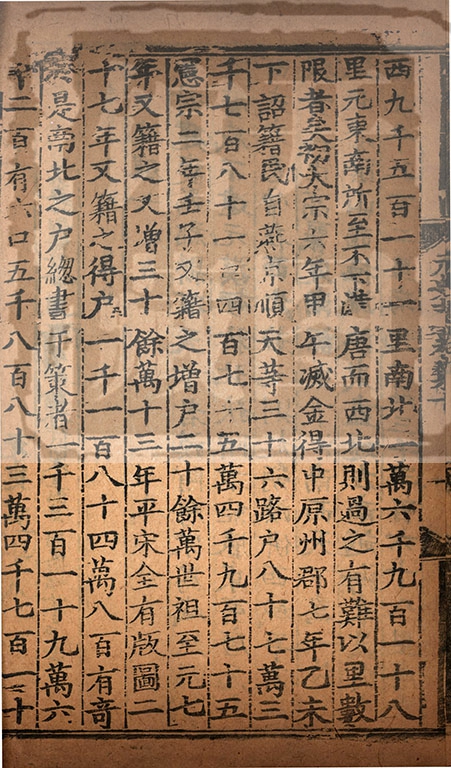 西九千五百一十一里南北一萬六千九百一十八
里元東南所至不下漢唐而西北則過之有難以里數
限者矣初太宗六年甲午滅金得中原州郡七年乙未
下詔籍民自燕京順天等三十六路户八十七萬三
千七百八十一口四百七十五萬四千九百七十五
憲宗二年壬子又籍之增户二十餘萬世祖至元七
年又籍之又增三十餘萬十三年平宋全有版圖二
十七年又籍之得户一千一百八十四萬八百有奇
於是南北之户總書于策者一千三百一十九萬六
千二百有六口五千八百八十三萬四千七百一十